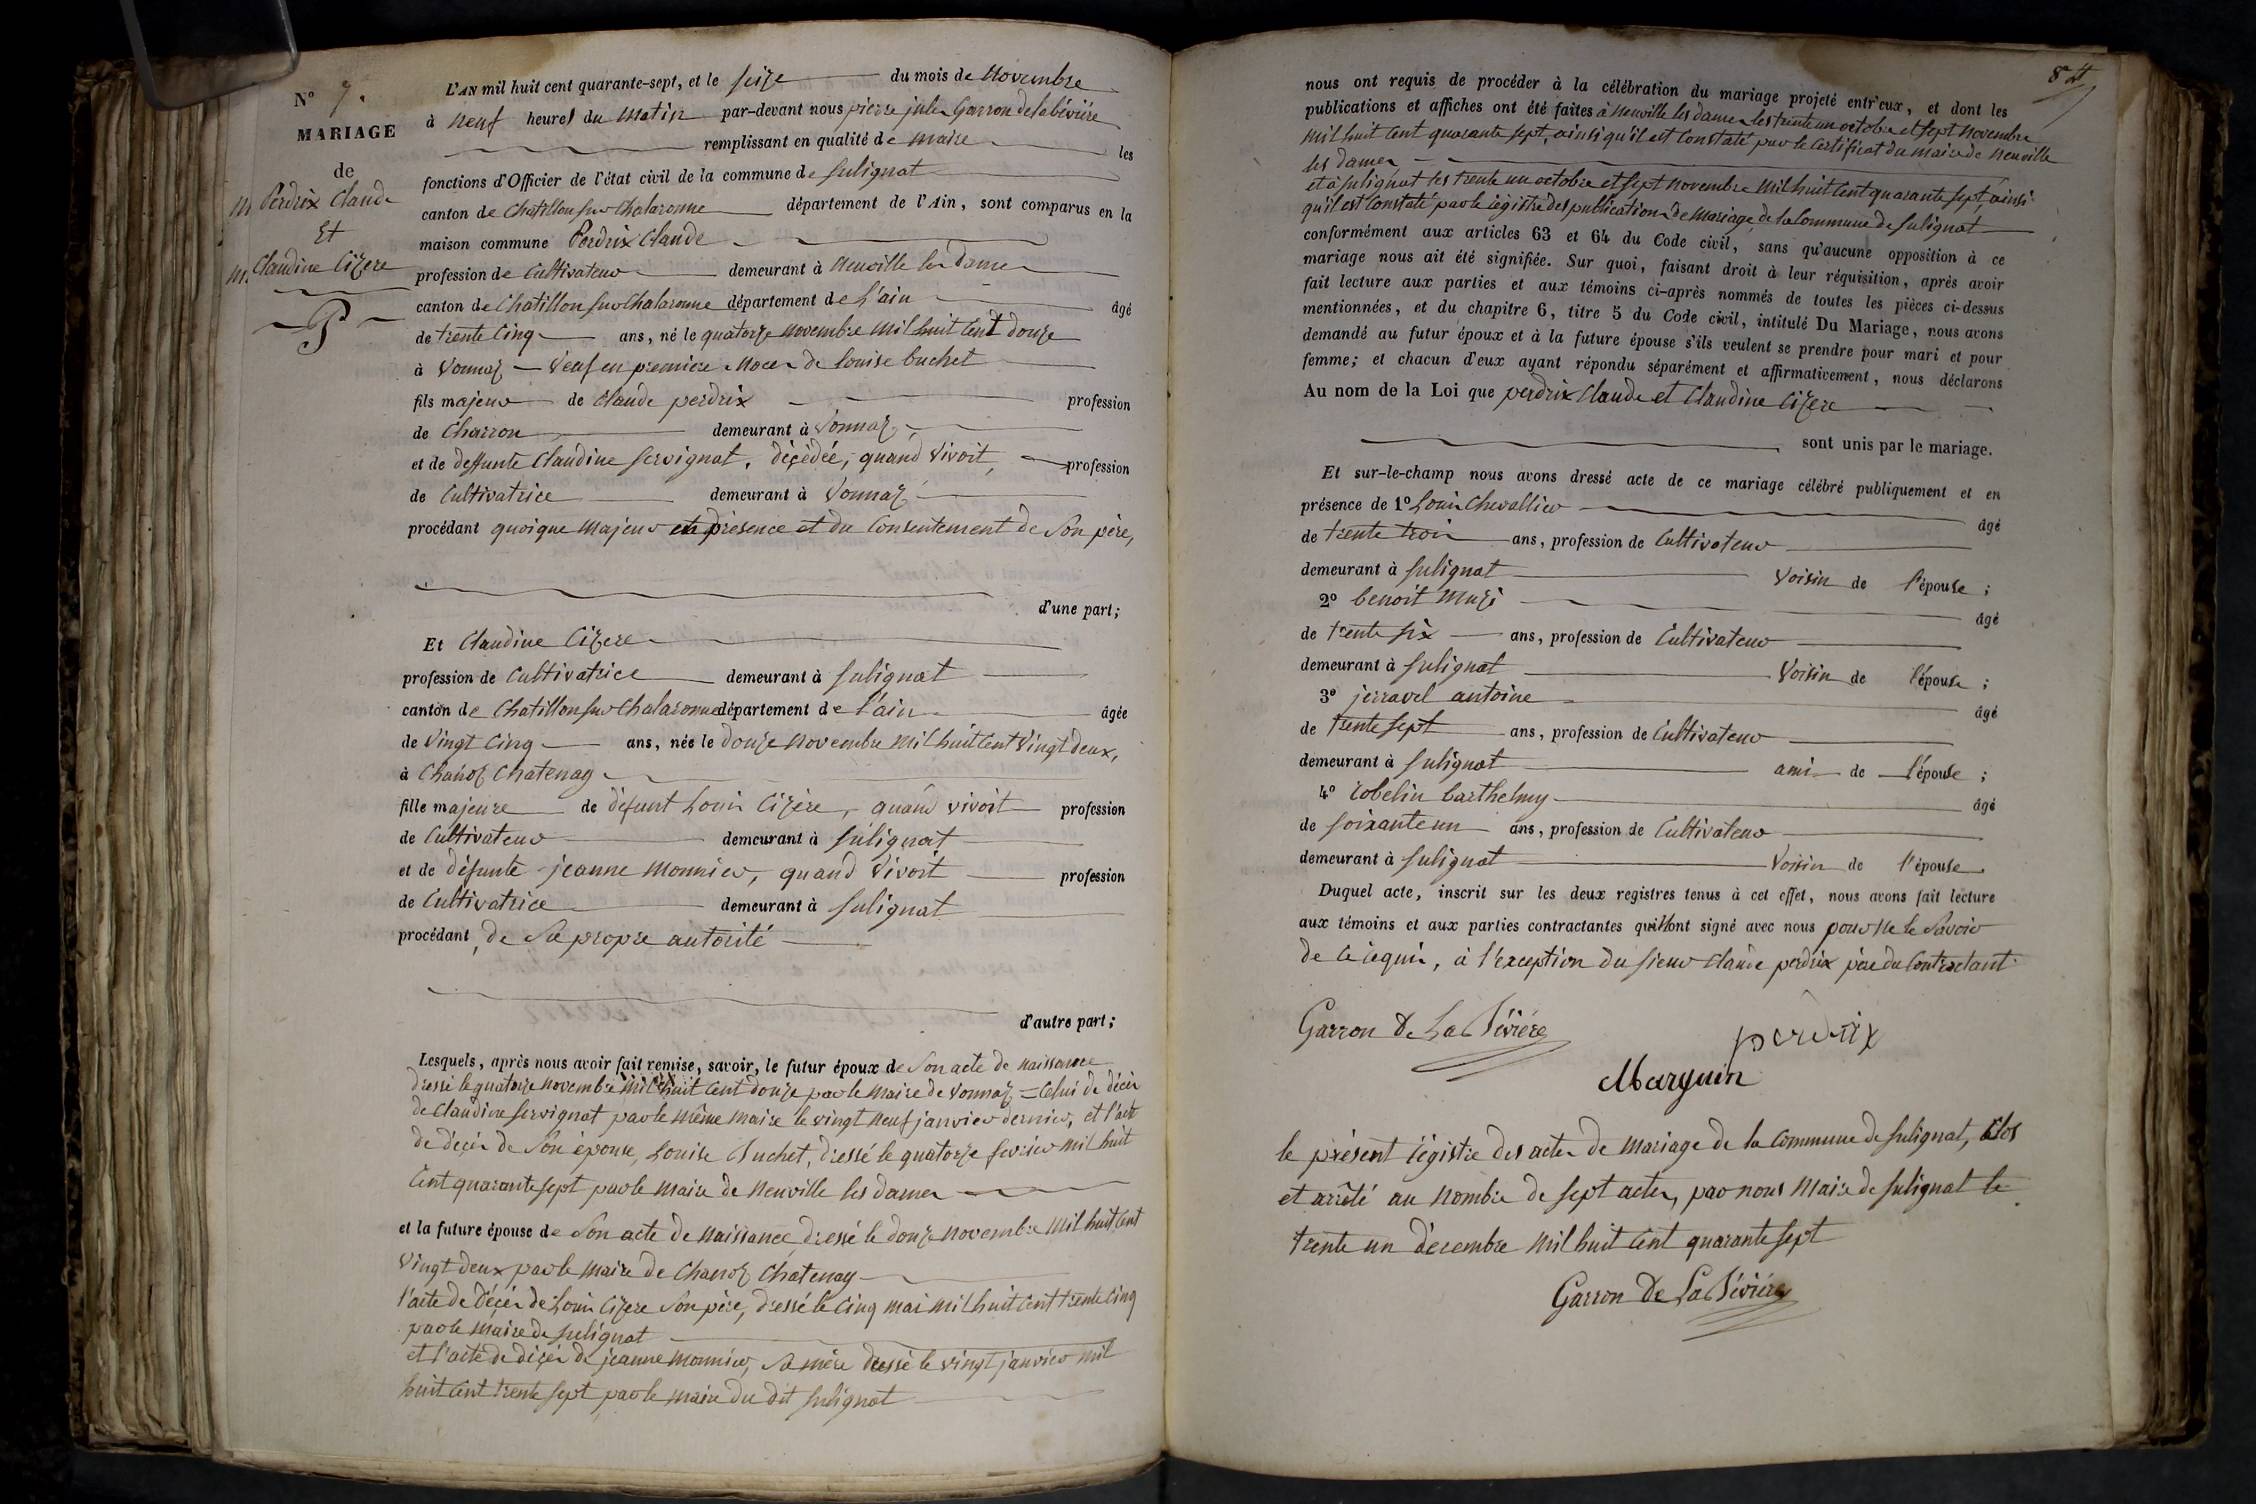 N° 7.
MARIAGE
de
m Perdrix Claude
Et
m. Claudine Cizere
L'AN mil huit cent quarante-sept, et le seize du mois de Novembre
à neuf heures du Matin par-devant nous pierre jules Garron de la bévière
remplissant en qualité de maire les
fonctions d'Officier de l'état civil de la commune de Sulignat
canton de Chatillon sur Chalaronne département de l'Ain, sont comparus en la
maison commune Perdrix Claude
profession de Cultivateur demeurant à Neuville les dames
canton de Chatillon sur Chalaronne département de L'ain âgé
de trente Cinq ans, né le quatorze novembre mil huit Cent douze
à Vonnaz Veuf en premiere Noces de Louise buchet
fils majeur de Claude perdrix profession
de Charron demeurant à Vonnaz,
et de deffunte Claudine Servignat, décédée, quand Vivoit, profession
de Cultivatrice demeurant à Vonnaz
procédant quoique Majeur en présence et du Consentement de Son père,
d'une part;
Et Claudine Cizere
profession de Cultivatrice demeurant à Sulignat
canton de Chatillon sur Chalaronne département de l'ain âgée
de Vingt Cinq ans, née le douze Novembre Mil huit Cent Vingt deux,
à Chanoz Chatenay
fille majeure de défunt Louis Cizère, quand vivoit profession
de Cultivateur demeurant à Sulignat
et de défunte jeanne Monnier, quand Vivoit profession
de Cultivatrice demeurant à Sulignat
procédant, de Sa propre autorité
d'autre part;
Lesquels, après nous avoir fait remise, savoir, le futur époux de Son acte de naissance
dressé le quatorze novembre mil huit Cent douze par le Maire de Vonnaz = Celui de décès
de Claudine Servignat par le même Maire le vingt neuf janvier dernier, et l'acte
de décès de Son épouse, Louise Buchet, dressé le quatorze fevrier Mil huit
Cent quarante sept par le Maire de Neuville les dames
et la future épouse de Son acte de Naissance dressé le douze Novembre Mil huit Cent
Vingt deux par le Maire de Chanoz Chatenay
l'acte de Décès de Louis Cizere Son père, dressé le Cinq mai Mil huit Cent trente Cinq
par le Maire de Sulignat
et l'acte de décès de jeanne Monnier, Sa mère dressé le vingt janvier mil
huit Cent trente Sept par le Maire du dit Sulignat
nous ont requis de procéder à la célébration du mariage projeté entr'eux, et dont les
publications et affiches ont été faites à Neuville les dames les trente un octobre et Sept Novembre
Mil huit Cent quarante Sept, ainsi qu'il est Constaté par le Certificat du Maire de Neuville
les dames
et à Sulignat les trente un octobre et Sept Novembre Mil huit Cent quarante Sept ainsi
qu'il est Constaté par le régistre des publications de Mariage de la Commune de Sulignat
conformément aux articles 63 et 64 du Code civil, sans qu'aucune opposition à ce
mariage nous ait été signifiée. Sur quoi, faisant droit à leur réquisition, après avoir
fait lecture aux parties et aux témoins ci-après nommés de toutes les pièces ci-dessus
mentionnées, et du chapitre 6, titre 5 du Code civil, intitulé Du Mariage, nous avons
demandé au futur époux et à la future épouse s'ils veulent se prendre pour mari et pour
femme; et chacun d'eux ayant répondu séparément et affirmativement, nous déclarons
Au nom de la Loi que perdrix Claude et Claudine Cizere
sont unis par le mariage.
Et sur-le-champ nous avons dressé acte de ce mariage célébré publiquement et en
présence de 1° Louis Chevallier âgé
de trente trois ans, profession de Cultivateur
demeurant à Sulignat Voisin de l'épouse;
2° benoit Muzi âgé
de trente Six ans, profession de Cultivateur
demeurant à Sulignat Voisin de l'épouse;
3° jerravel antoine âgé
de trente Sept ans, profession de Cultivateur
demeurant à Sulignat ami de l'épouse;
4° robelin barthelmy âgé
de Soixante un ans, profession de Cultivateur
demeurant à Sulignat Voisin de l'épouse
Duquel acte, inscrit sur les deux registres tenus à cet effet, nous avons fait lecture
aux témoins et aux parties contractantes qui n'ont signé avec nous pour Ne le Savoir
de Ce requis, à l'exception du Sieur Claude perdrix père du Contractant
Garron De La Bévière
perdrix
Marguin
le présent régistre des actes de Mariage de la Commune de Sulignat, Clos
et arrêté au Nombre de Sept actes, par nous Maire de Sulignat le
trente un décembre Mil huit Cent quarante Sept
Garron De La Bévière